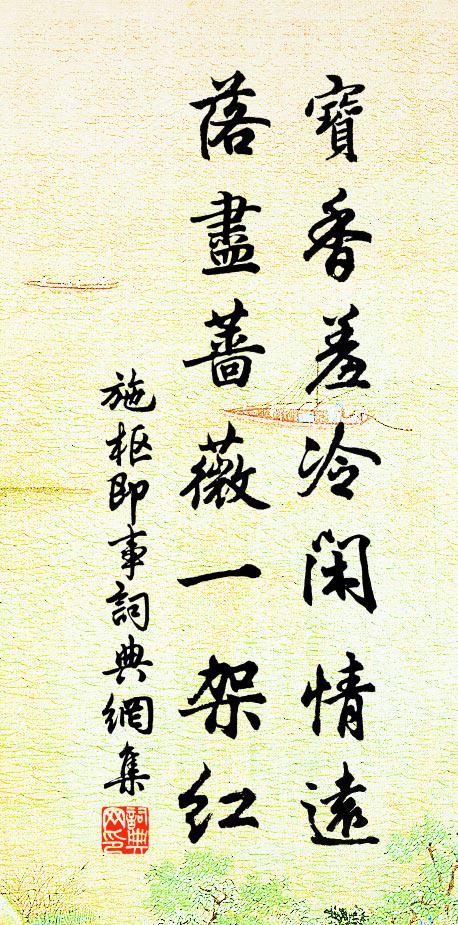 寶香羞冷閑情遠
落盡薔薇一架紅
施枢即事詞典網集
詞典網印